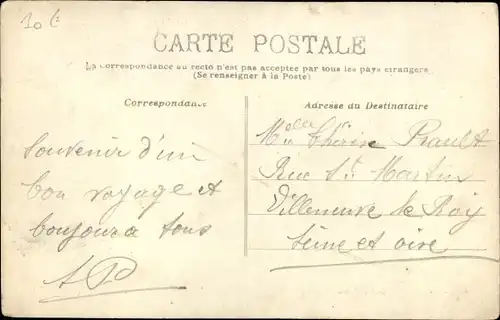 10 €
CARTE POSTALE
La Correspondance au recto n'est pas acceptée par tous les pays étrangers
(Se renseigner à la Poste)
Correspondance
Adresse du Destinataire
Souvenir d'un
bon voyage et
bonjour a tous
AP
Melle Thérèse Prault
Rue St Martin
Villeneuve le Roy
Seine et oise